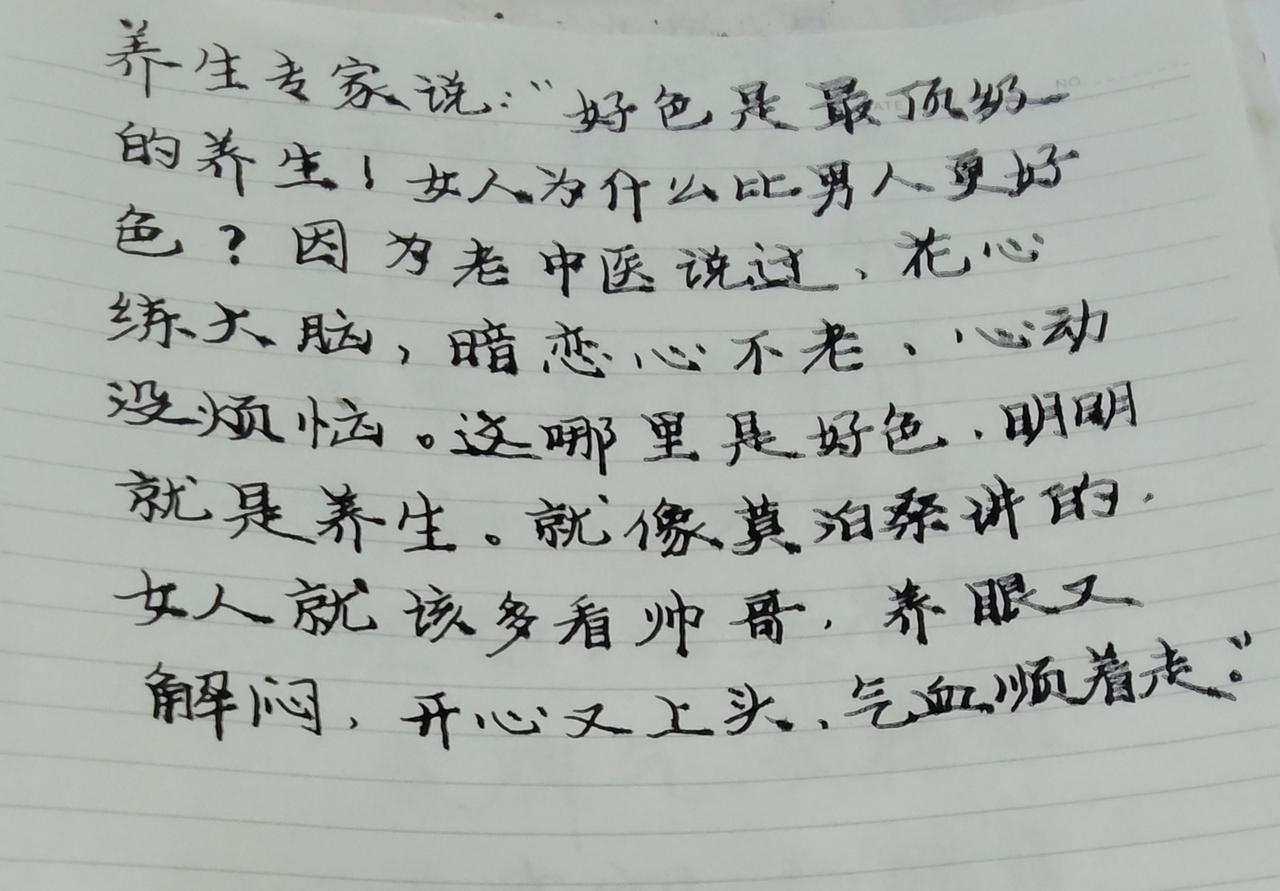 养生专家说："好色是最顶级
的养生！女人为什么比男人更好
色？因为老中医说过、花心
练大脑，暗恋心不老、心动
没烦恼。这哪里是好色，明明
就是养生。就像莫泊桑讲的，
女人就该多看帅哥，养眼又
解闷，开心又上头，气血顺着走。"